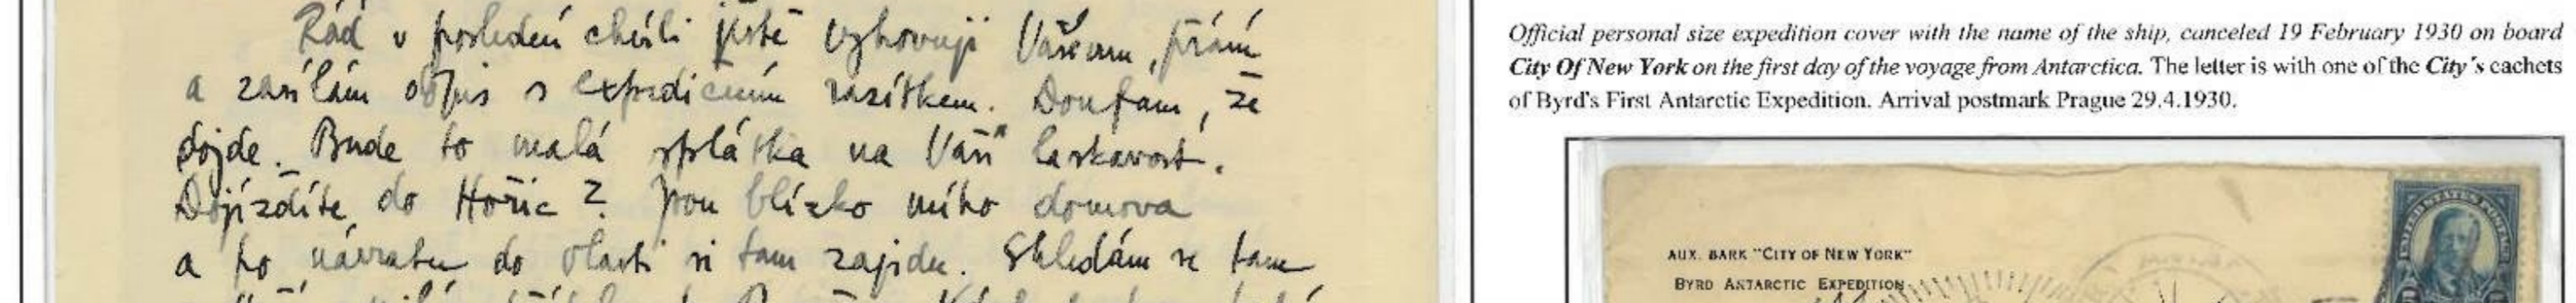 Rád v poslední chvíli ještě vyhovuji Vašemu přání
a zasílám dopis s expedičním razítkem. Doufám, že
dojde. Bude to malá splátka na Vaši laskavost.
Dojíždíte do Hořic? Jsou blízko mého domova
a po návratu do vlasti si tam zajedu. Shledám se tam
Official personal size expedition cover with the name of the ship, canceled 19 February 1930 on board
City Of New York on the first day of the voyage from Antarctica. The letter is with one of the City's cachets
of Byrd's First Antarctic Expedition. Arrival postmark Prague 29.4.1930.
AUX. BARK "CITY OF NEW YORK"
BYRD ANTARCTIC EXPEDITION
UNITED STATES POSTAGE